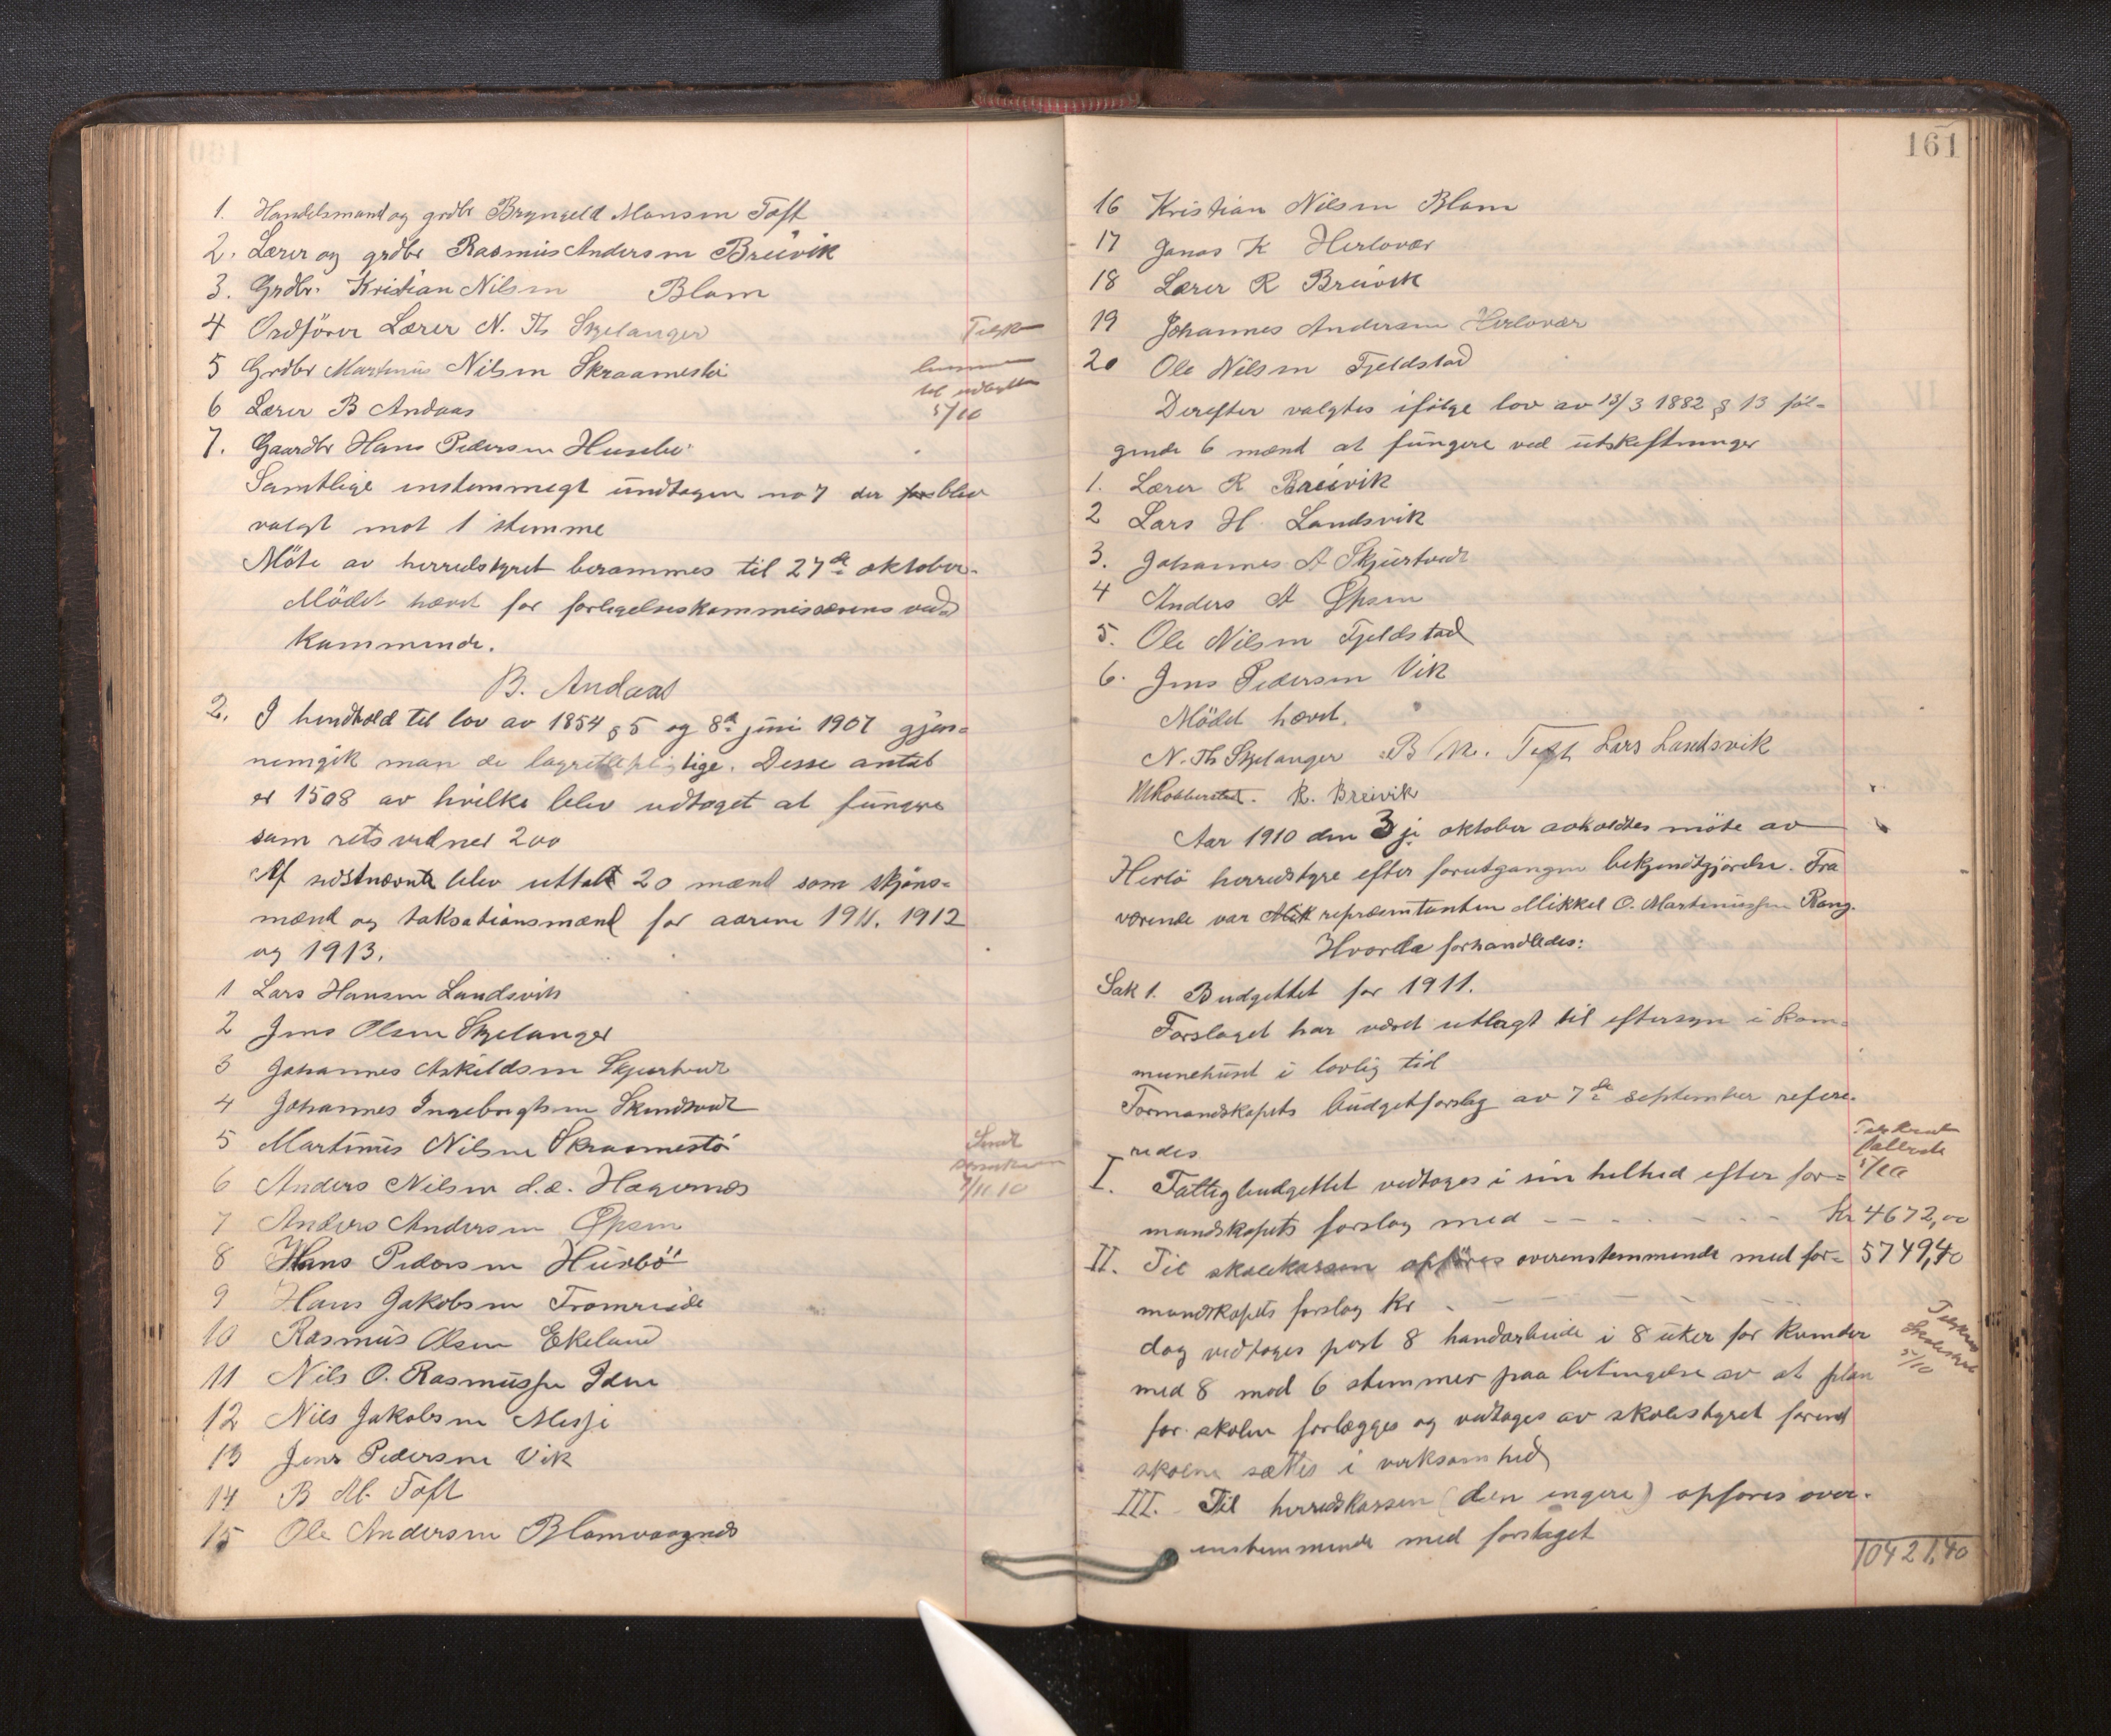 1. Handelsmand og grdbr Bryngeld Monsen Toft
2. Lærer og grdbr Rasmus Andersen Breivik
3. Grdbr. Kristian Nilsen Blom
4 Ordfører Lærer N. Th Skjelanger
5 Grdbr Martinus Nilsen Skraamestø
6 Lærer B Andaas
7. Gaardbr Hans Pedersen Husebø
til
5/10
Samtlige enstemmegt undtagen no 7 der blev
valgt mot 1 stemme
Möte av herredstyret berammes til 27de oktober.
Mödet hævet for forligelseskommissærens ved
kommende.
B. Andaas
2. I henhold til lov av 1854 § 5 og 8de juni 1907 gjen=
nemgik man de lagrettepligtige. Desse antal
er 1508 av hvilke blev udtaget at fungere
som retsvidner 200
Af sidstnævnte blev uttatt 20 mænd som skjøns=
mænd og taksationsmænd for aarene 1911. 1912
og 1913.
1 Lars Hansen Landsvik
2 Jens Olsen Skjelanger
3 Johannes Askildsen Skjurtveit
4 Johannes Ingebrigtsen
5 Martinus Nilsen Skraamestø
6 Anders Nilsen d.e. Hagenæs
7 Anders Andersen Opsen
8 Hans Pedersen Husebö
9 Hans Jakobsen Tromreide
10 Rasmus Olsen Ekeland
11 Nils O. Rasmussen
12 Nils Jakobsen
13 Jens Pedersen Vik
14 B M. Toft
15 Ole Andersen Blomvaagnes
Sendt
7/11 10
161
16 Kristian Nilsen Blom
17 Jonas K Herlovær
18 Lærer R Breivik
19 Johannes Andersen Herlovær
20 Ole Nilsen Fjeldstad
Derefter valgtes ifølge lov av 13/3 1882 § 13 føl=
gende 6 mænd at fungere ved utskiftninger
1. Lærer R Breivik
2 Lars H. Landsvik
3. Johannes A Skjurtveit
4 Anders A Opsen
5. Ole Nilsen Fjeldstad
6. Jens Pedersen Vik
Mödet hævet.
N. Th Skjelanger B M. Toft Lars Landsvik
R. Breivik
Aar 1910 den 3je oktober avholdtes möte av
Herlö herredstyre efter forutgangen bekjendtgjörelse. Fra
værende var Mik repræsentanten Mikkel O. Martinussen Rong.
Hvorda forhandledes:
Sak 1. Budgettet for 1911.
Forslaget har været utlagt til eftersyn i kom=
munehuset i lovlig tid
Formandskapets budgetforslag av 7de september refere.
redes
I. Fattigbudgettet vedtages i sin helhed efter for=
mandskapets forslag med - - - - - kr 4672,00
5/10
II. Til skolekassen opføres overenstemmende med for= 5749,40
mandskapets forslag kr - - - -
dog vedtages post 8 handarbeide i 8 uker for kvinder
med 8 mod 6 stemmer paa betingelse av at plan
for skolen forlægges og vedtages av skolestyret forend
skolen sættes i verksomhed
Skolestyret
5/10
III. Til herredskassen (den engere) opføres over-
enstemmende med forslaget
10421,40